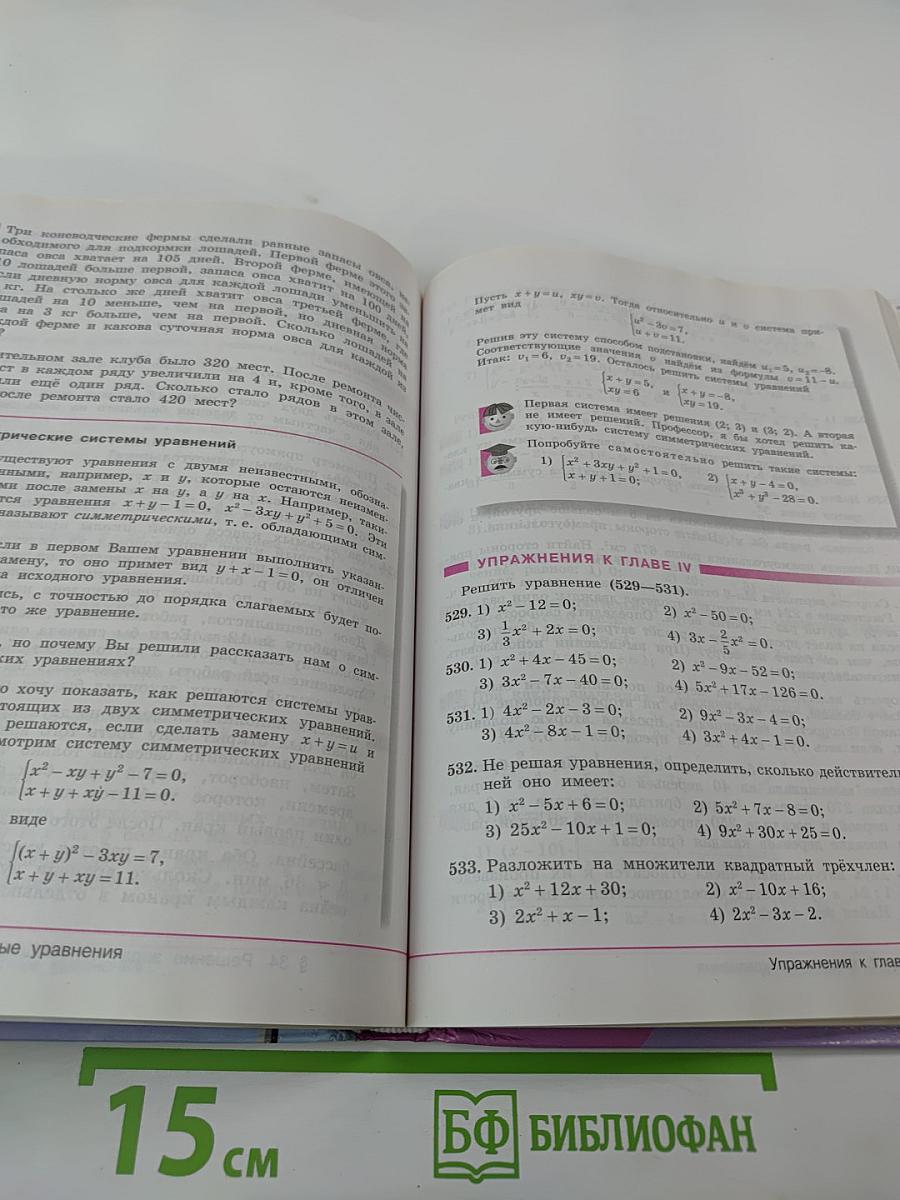 Три коневодческие фермы сделали равные запасы овса, не-
обходимого для подкормки лошадей. Первой ферме этого за-
паса овса хватает на 105 дней. Второй ферме, имеющей на
10 лошадей больше первой, запаса овса хватит на 100 дней,
если дневную норму овса для каждой лошади уменьшить на
кг. На столько же дней хватит овса третьей ферме, где
лошадей на 10 меньше, чем на первой, но дневная норма
а на 3 кг больше, чем на первой. Сколько лошадей на
ждой ферме и какова суточная норма овса для каждой из
?
ительном зале клуба было 320 мест. После ремонта чис-
ст в каждом ряду увеличили на 4 и, кроме того, в зале
или ещё один ряд. Сколько стало рядов в этом зале,
после ремонта стало 420 мест?
трические системы уравнений
уществуют уравнения с двумя неизвестными, обозна-
нными, например, x и y, которые остаются неизмен-
ми после замены x на y, а y на x. Например, таки-
тся уравнения x+y−1=0, x²−3xy+y²+5=0. Эти
называют симметрическими, т. е. обладающими сим-
сли в первом Вашем уравнении выполнить указан-
замену, то оно примет вид y+x−1=0, он отличен
а исходного уравнения.
ись, с точностью до порядка слагаемых будет по-
то же уравнение.
, но почему Вы решили рассказать нам о сим-
ких уравнениях?
о хочу показать, как решаются системы урав-
тоящих из двух симметрических уравнений.
решаются, если сделать замену x+y=u и
мотрим систему симметрических уравнений
x²−xy+y²−7=0,
x+y+xy−11=0.
виде
(x+y)²−3xy=7,
x+y+xy=11.
ые уравнения
Пусть x+y=u, xy=v. Тогда относительно u и v система при-
мет вид
u²−3v=7,
u+v=11.
Решив эту систему способом подстановки, найдём u₁=5, u₂=−8.
Соответствующие значения v найдём из формулы v=11−u.
Итак: v₁=6, v₂=19. Осталось решить системы уравнений
x+y=5, и x+y=−8,
xy=6 xy=19.
Первая система имеет решения (2; 3) и (3; 2). А вторая
не имеет решений. Профессор, я бы хотел решить ка-
кую-нибудь систему симметрических уравнений.
Попробуйте самостоятельно решить такие системы:
1) x²+3xy+y²+1=0, 2) x+y−4=0,
x+y+1=0; x³+y³−28=0.
УПРАЖНЕНИЯ К ГЛАВЕ IV
Решить уравнение (529—531).
529. 1) x²−12=0; 2) x²−50=0;
3) 1/3x²+2x=0; 4) 3x−2/5x²=0.
530. 1) x²+4x−45=0; 2) x²−9x−52=0;
3) 3x²−7x−40=0; 4) 5x²+17x−126=0.
531. 1) 4x²−2x−3=0; 2) 9x²−3x−4=0;
3) 4x²−8x−1=0; 4) 3x²+4x−1=0.
532. Не решая уравнения, определить, сколько действитель
ней оно имеет:
1) x²−5x+6=0; 2) 5x²+7x−8=0;
3) 25x²−10x+1=0; 4) 9x²+30x+25=0.
533. Разложить на множители квадратный трёхчлен:
1) x²+12x+30; 2) x²−10x+16;
3) 2x²+x−1; 4) 2x²−3x−2.
Упражнения к глав
15 см
БФ БИБЛИОФАН